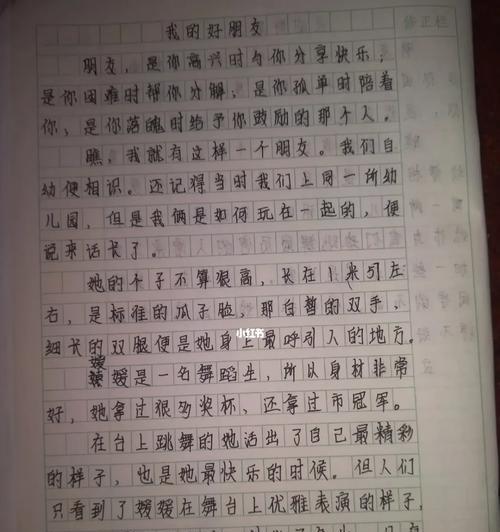 我的好朋友
修正栏
朋友，是你高兴时与你分享快乐；
是你困难时帮你分解；是你孤单时陪着
你，是你落魄时给予你鼓励的那个人。
瞧，我就有这样一个朋友。我们自
幼便相识。还记得当时我们上同一所幼
儿园，但是我俩是如何玩在一起的，便
说来话长了。
她的个子不算很高，长在1米57左
右，是标准的瓜子脸，那白皙的双手，
小红书
细长的双腿便是她身上最吸引人的地方。
媛媛是一名舞蹈生，所以身材非常
好，她拿过很多奖杯，还拿过市冠军。
在台上跳舞的她活出了自己最精彩
的样子，也是她最快乐的时候。但人们
只看到了媛媛在舞台上优雅表演的样子，